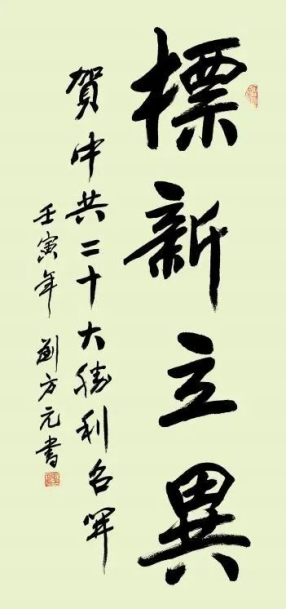 標新立異
賀中共二十大勝利召開
壬寅年 劉方元書